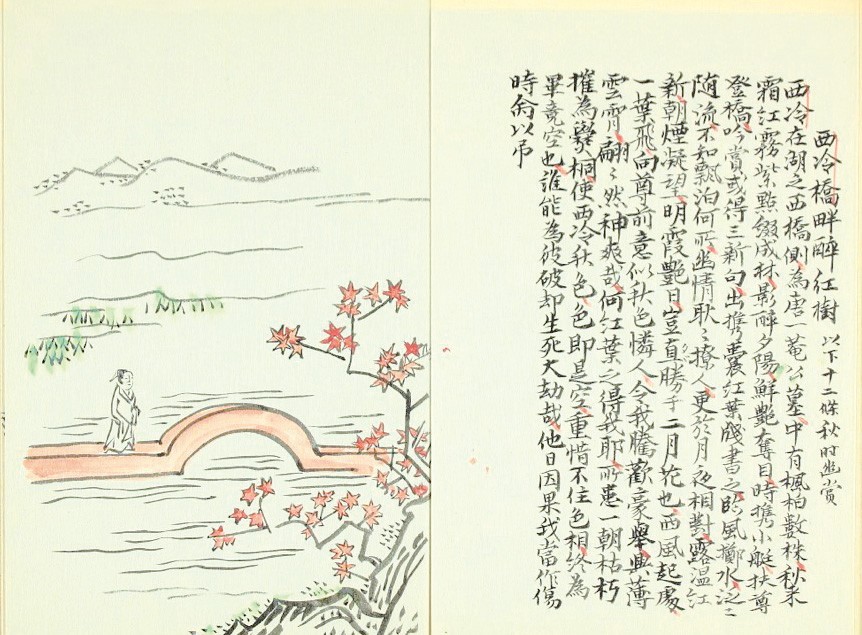 西冷橋畔醉红樹 以下十二條秋时幽賞
西冷在湖之西橋側為唐一菴公墓中有楓柏數株秋来
霜红霧紫點綴成林影醉夕陽鮮艷奪目時携小艇扶尊
登橋吟賞或得三新句出携囊红葉牋書之臨風擲水泛〻
随流不知飄泊何所幽情耿〻撩人更於月夜相對露温红
新朝煙凝望明霞艷日豈直勝于二月花也西風起處
一葉飛向尊前意似秋色憐人令我騰歡豪舉興薄
雲霄翩〻然神爽哉何红葉之得我耶所患一朝枯朽
摧為爨桐使西冷秋色〻即是空重惜不住色相終為
畢竟空也誰能為彼破却生死大劫哉他日因果我當作傷
時命以吊